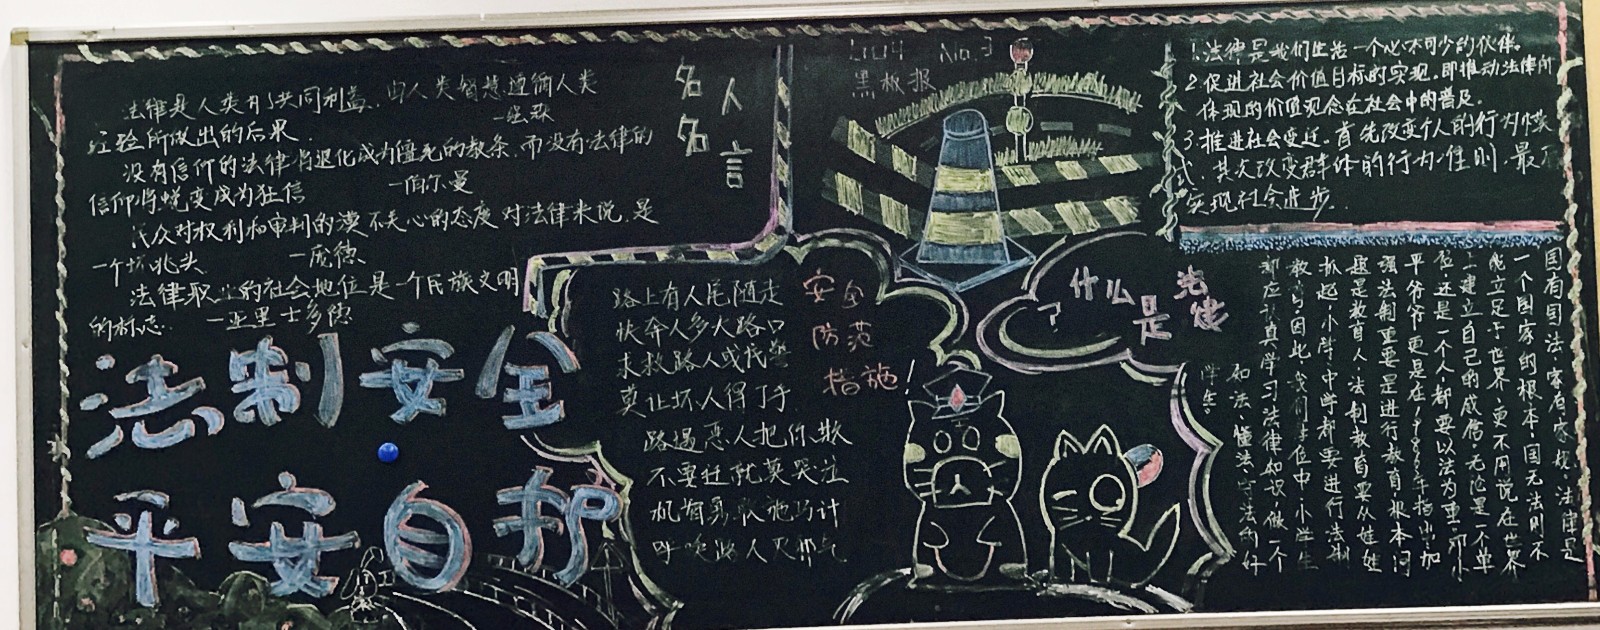 法律是人类为了共同利益,由人类智慧遵循人类
经验所做出的后果.
—强森
没有信仰的法律将退化成为僵死的教条,而没有法律的
信仰将蜕变成为狂信
—伯尔曼
民众对权利和审判的漠不关心的态度对法律来说,是
一个坏兆头
—庞德
法律职业的社会地位是一个民族文明
的标志.
—亚里士多德
名人
名言
法制安全
平安自护
No.3
黑板报
1.法律是我们生活一个必不可少的伙伴。
2.促进社会价值目标的实现,即推动法律所
体现的价值观念在社会中的普及。
3.推进社会变迁。首先改变个人的行为模
式,其次改变群体的行为准则,最
实现社会进步.
安全
防范
措施!
路上有人尾随走
快奔人多大路口
求救路人或找警
莫让坏人得了手
路遇恶人把你欺
不要
机智勇敢施巧计
呼唤路人
什么
是
法律
?
国有国法,家有家规,法律是
一个国家的根本,国无法则不
能立足于世界,更不用说在世界
上建立自己的威信,无论是一个单
位还是一个人,都要以法为重,邓小
平爷爷更是在1986年指出:加
强法制重要是进行教育,根本问
题是教育人,法制教育要从娃娃
抓起,小学中学都要进行法制
教育,因此,我们单位中小学生
都应认真学习法律知识,做一个
知法、懂法、守法的好
学生。